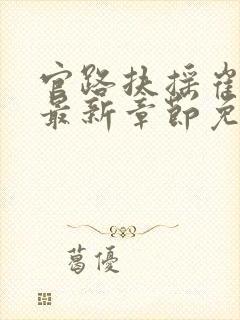 官路扶摇崔
最新章节免
葛優